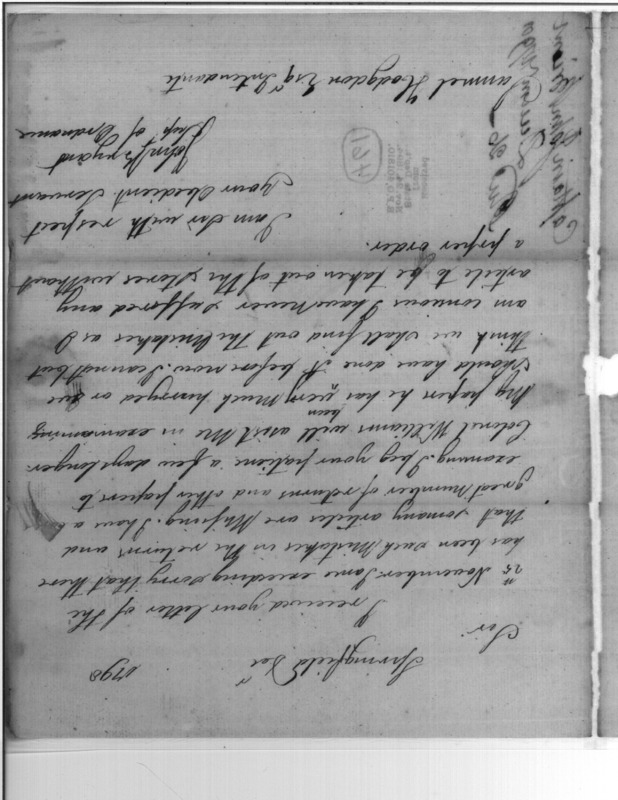 Springfield Decr 1790
Sir
I received your letter of the
25th November. I ame exceding Sorry that there
has been Such Mistakes in the returns and
that somany articles are Missing. I have a
great number of returns and other papers to
examing. I beg your patience a few days longer
Colonel Williams will asist Me in examaning
My papers he has been very Much hurryed or we
Should have done it before now. I cannot but
think we Shall find out the Mistakes as I
am consious I have Never Suffered any
article to be taken out of the Stores without
a proper order.
I am Sir with respect
your Obedient Servant
John Bryant
Dept of Ordnance
Samuel Hodgdon Esqr Intendant
174
Received
from
State Dept.
R.P.O. 101810.
Captain John Bryant